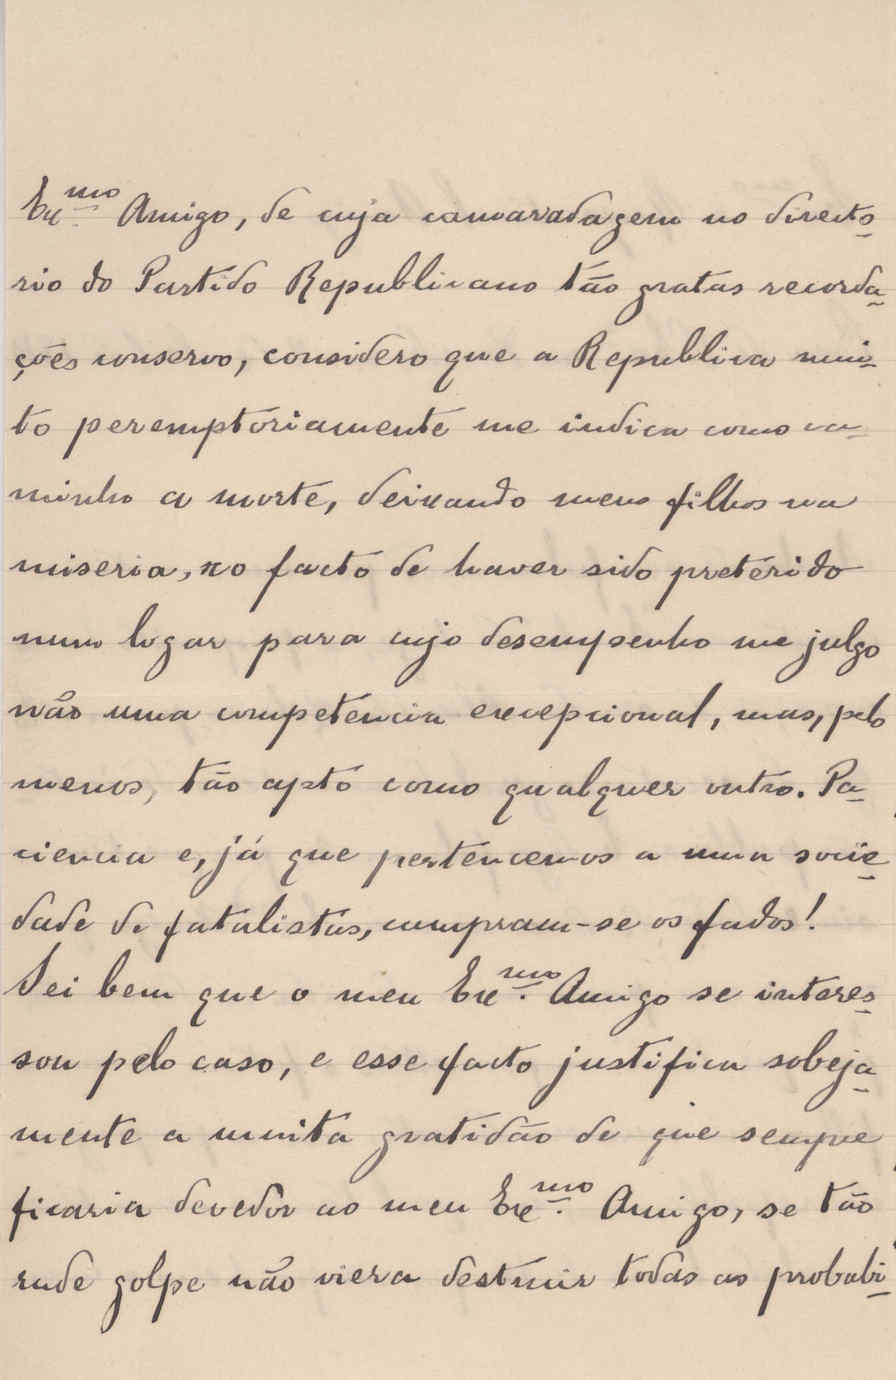 Ex.mo Amigo, de cuja camaradagem no directo-
rio do Partido Republicano tão gratas recorda-
ções conservo, considero que a Republica mui-
to peremptóriamente me indica como ca-
minho a morte, deixando meus filhos na
miseria, no facto de haver sido preterido
num logar para cujo desempenho me julgo
não uma competencia excepcional, mas, pelo
menos, tão apto como qualquer outro. Pa-
ciencia e, já que pertencemos a uma socie-
dade de fatalistas, cumpram-se os fados!
Sei bem que o meu Ex.mo Amigo se interes-
sou pelo caso, e esse facto justifica sobeja-
mente a muita gratidão de que sempre
ficaria devedor ao meu Ex.mo Amigo, se tão
rude golpe não viera destruir todas as probabi-